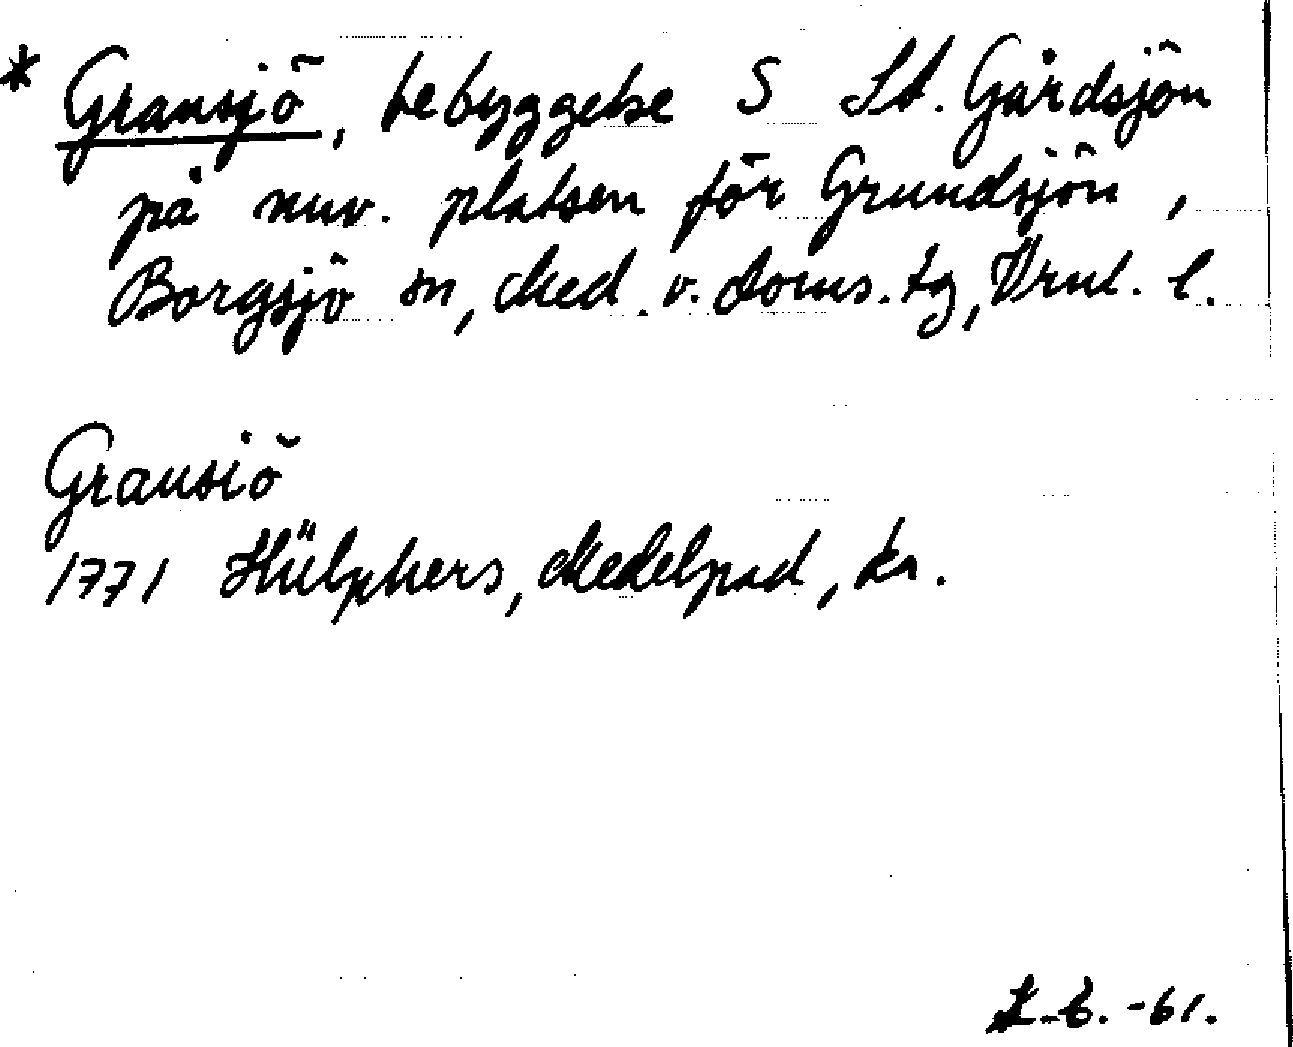 * Gransjö, bebyggelse S St. Gårdsjön
på nuv. platsen för Grundsjön,
Borgsjö sn, Med. v. doms. tg, Vrnl. l.
Gransiö
1771 Hülphers, Medelpad, ka.
L.B. -61.